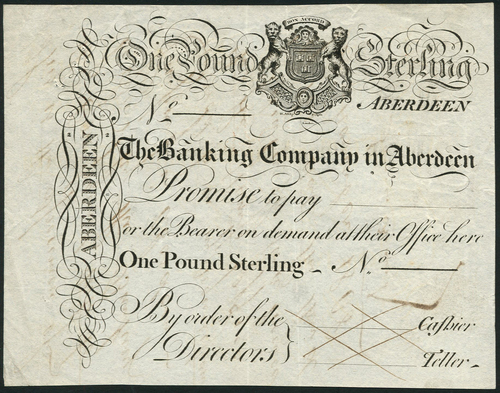 BON ACCORD
One Pound Sterling
ABERDEEN
No
ABERDEEN
The Banking Company in Aberdeen
Promise to pay
or the Bearer on demand at their Office here
One Pound Sterling - No
By order of the
Directors
Cashier
Teller -